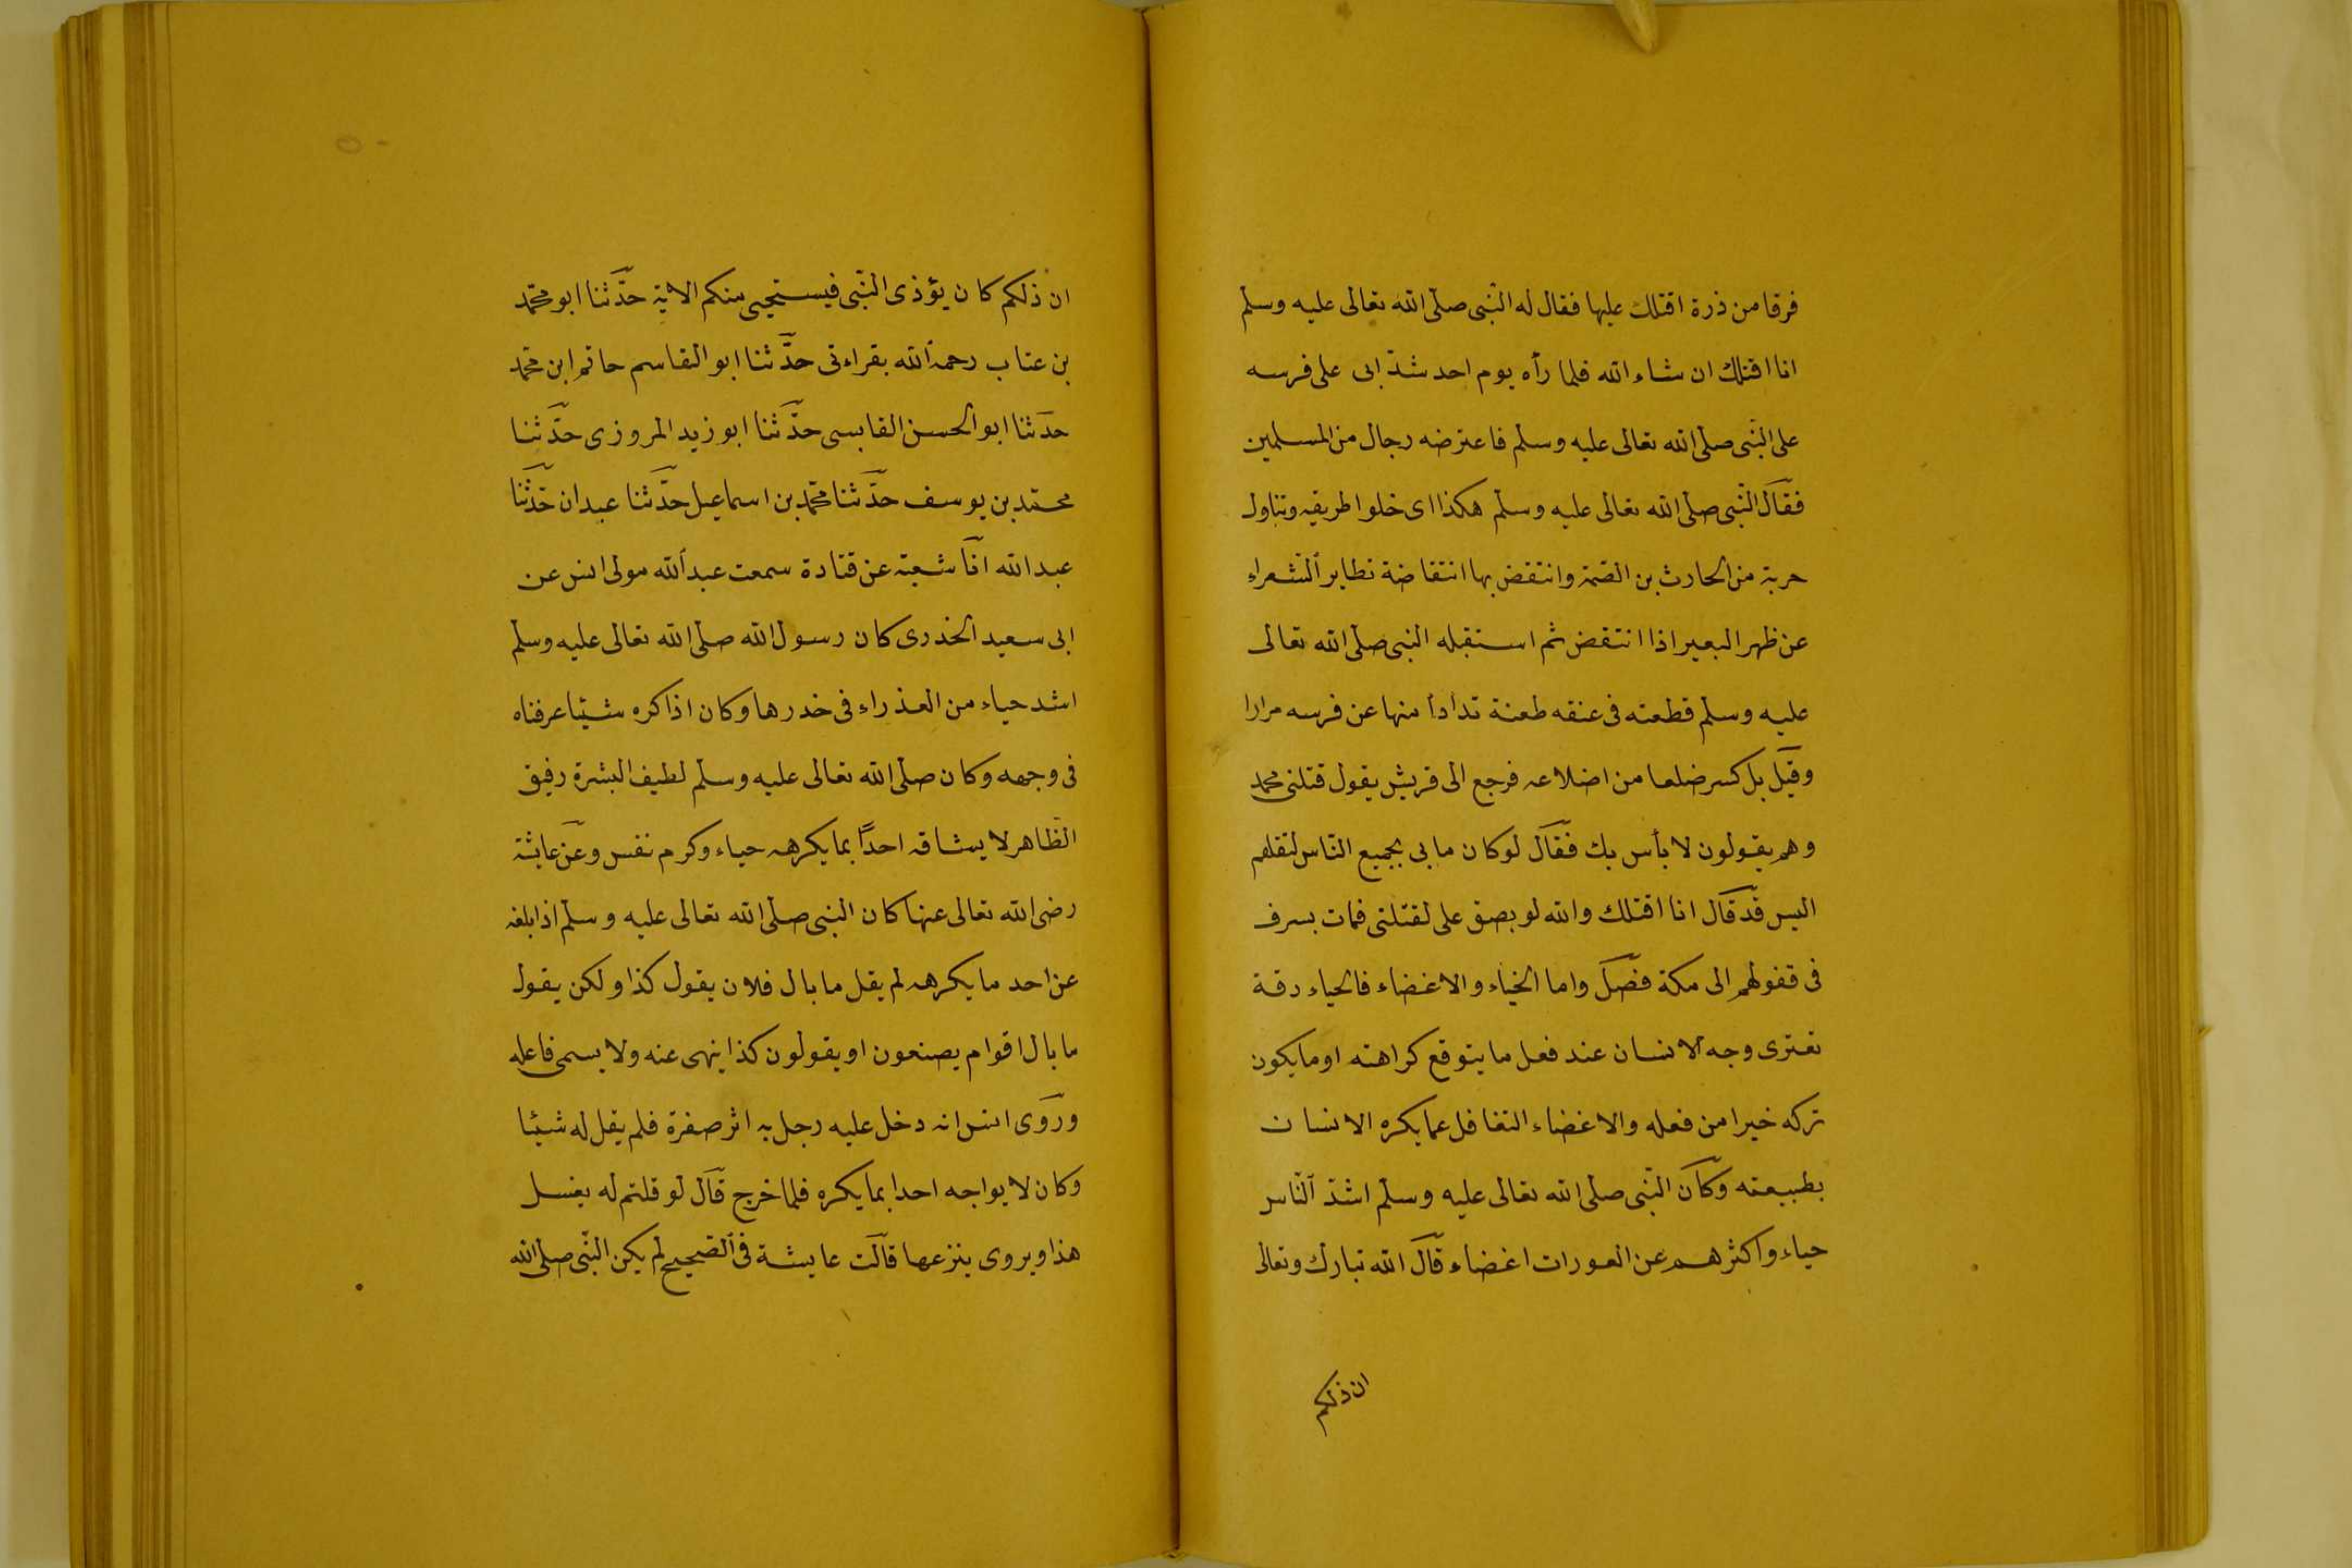 فرقا من ذرة اقتلك عليها فقال له النّبى صلّى الله تعالى عليه وسلّم
انا اقتلك ان شاء الله فلما رأه يوم احد شدّ ابى على فرسه
على النّبى صلّى الله تعالى عليه وسلّم فاعترضه رجال من المسلمين
فقال النّبى صلّى الله تعالى عليه وسلّم هكذا اى خلوا طريقه وتناول
حربة من الحارث بن الصّمة وانتفض بها انتفاضة تطاير الشّعراء
عن ظهر البعير اذا انتفض ثم استقبله النبى صلّى الله تعالى
عليه وسلّم فطعنه فى عنقه طعنة تدأدأ منها عن فرسه مرارا
وقيل بل كسر ضلعا من اضلاعه فرجع الى قريش يقول قتلنى محمد
وهم يقولون لا بأس بك فقال لو كان ما بى بجميع النّاس لقتلهم
اليس قد قال انا اقتلك والله لو بصق على لقتلنى فمات بسرف
فى قفولهم الى مكة فصل واما الحياء والاغضاء فالحياء رقة
تعترى وجه الانسان عند فعل ما يتوقع كراهته او ما يكون
تركه خيرا من فعله والاغضاء التغافل عما يكره الانسان
بطبيعته وكان النّبى صلّى الله تعالى عليه وسلّم اشدّ النّاس
حياء واكثرهم عن العورات اغضاء قال الله تبارك وتعالى
ان ذلكم
ان ذلكم كان يؤذى النّبى فيستحيى منكم الاية حدّثنا ابو محمّد
بن عتاب رحمه الله بقراءتى حدّثنا ابو القاسم حاتم ابن محمّد
حدّثنا ابو الحسن القابسى حدّثنا ابو زيد المروزى حدّثنا
محمّد بن يوسف حدّثنا محمّد بن اسماعيل حدّثنا عبدان حدّثنا
عبد الله انا شعبة عن قتادة سمعت عبد الله مولى انس عن
ابى سعيد الخدرى كان رسول الله صلّى الله تعالى عليه وسلّم
اشد حياء من العذراء فى خدرها وكان اذا كره شيئا عرفناه
فى وجهه وكان صلّى الله تعالى عليه وسلّم لطيف البشرة رقيق
الظّاهر لا يشافه احدًا بما يكرهه حياء وكرم نفس وعن عايشة
رضى الله تعالى عنها كان النبى صلّى الله تعالى عليه وسلّم اذا بلغه
عن احد ما يكرهه لم يقل ما بال فلان يقول كذا ولكن يقول
ما بال اقوام يصنعون او يقولون كذا ينهى عنه ولا يسمى فاعله
وروى انس انه دخل عليه رجل به اثر صفرة فلم يقل له شيئا
وكان لا يواجه احدا بما يكره فلما خرج قال لو قلتم له يغسل
هذا ويروى ينزعها قالت عايشة فى الصّحيح لم يكن النّبى صلّى الله